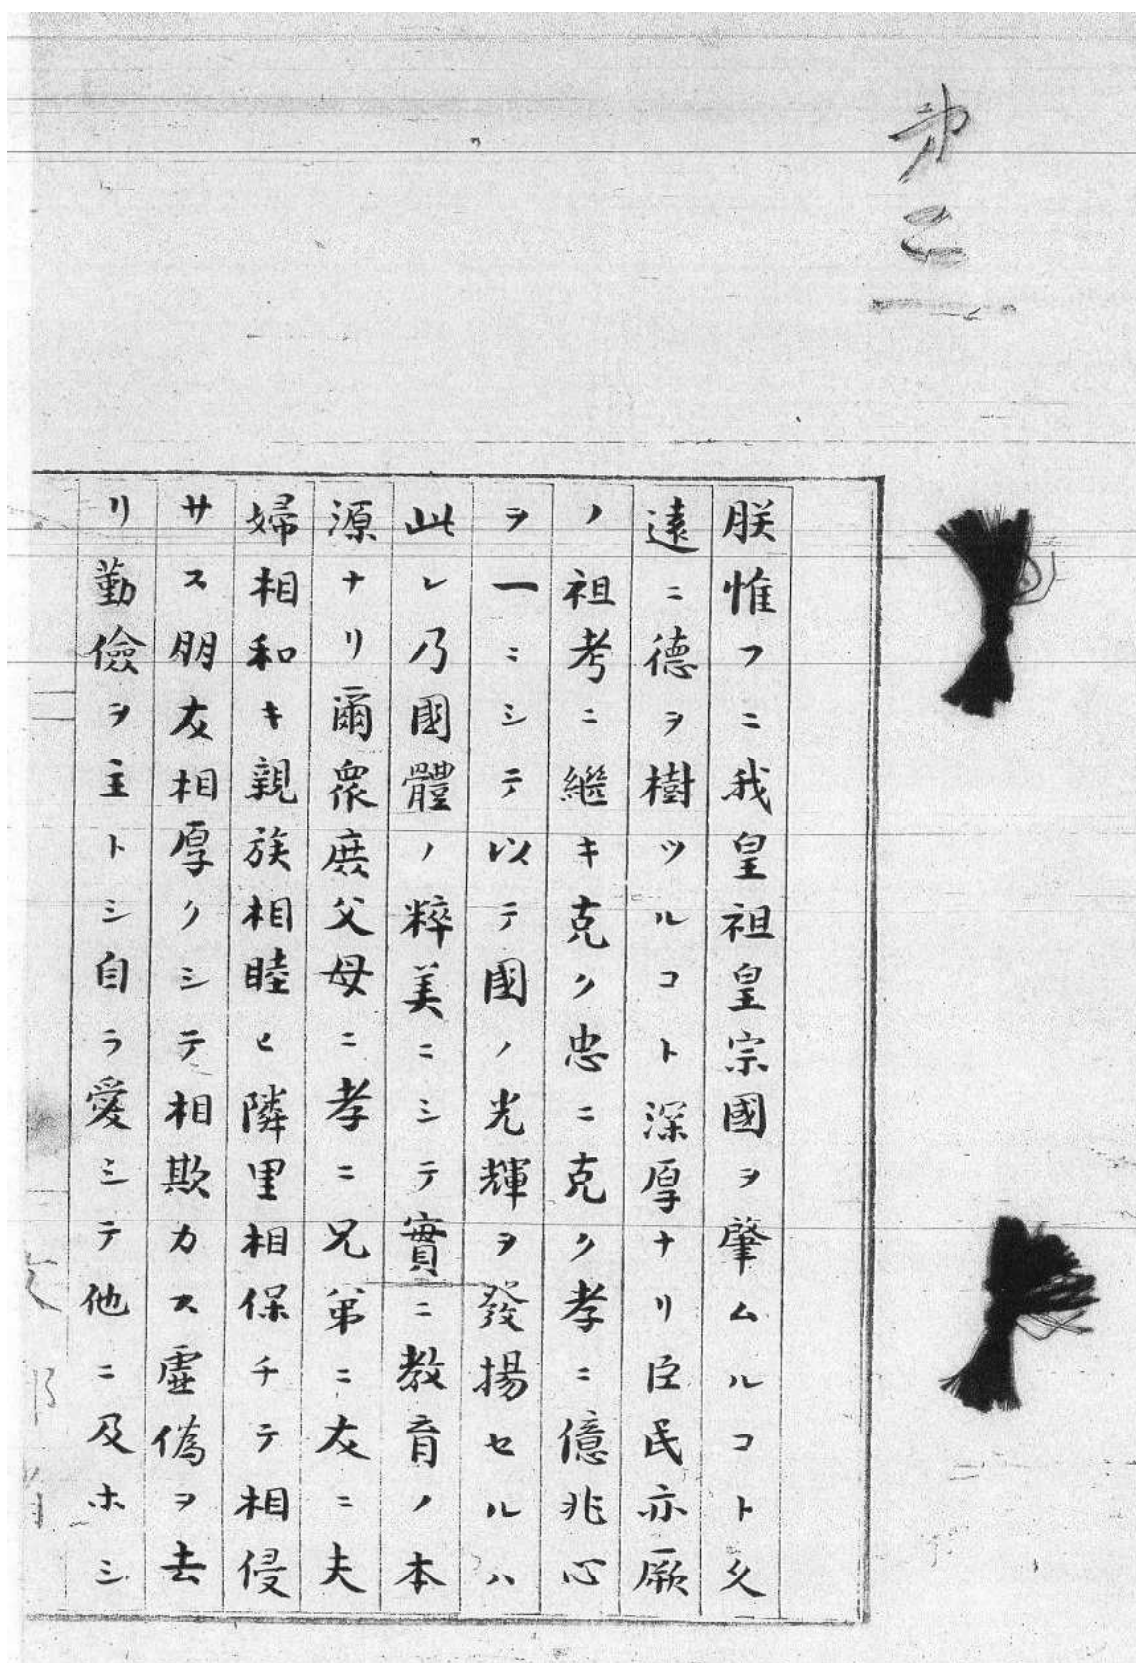 第二
朕惟フニ我皇祖皇宗國ヲ肇ムルコト久
遠ニ德ヲ樹ツルコト深厚ナリ臣民亦厥
ノ祖考ニ繼キ克ク忠ニ克ク孝ニ億兆心
ヲ一ニシテ以テ國ノ光輝ヲ發揚セルハ
此レ乃國體ノ粹美ニシテ實ニ教育ノ本
源ナリ爾衆庶父母ニ孝ニ兄弟ニ友ニ夫
婦相和キ親族相睦ヒ隣里相保チテ相侵
サス朋友相厚クシテ相欺カス虛偽ヲ去
リ勤儉ヲ主トシ自ラ愛シテ他ニ及ホシ
文部省